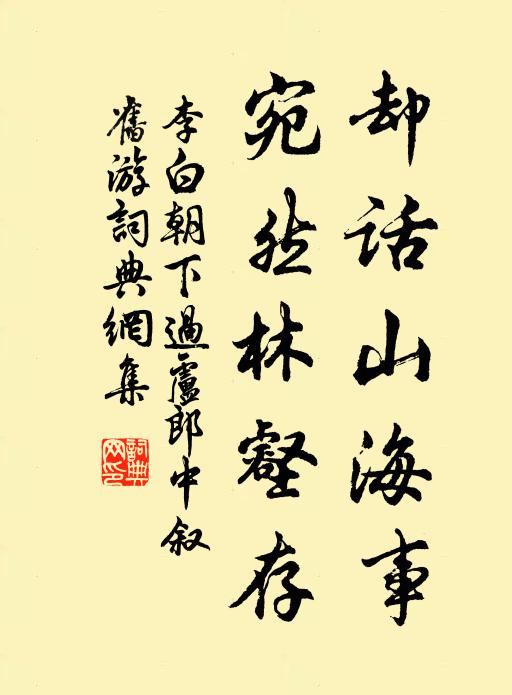 却话山海事
宛然林壑存
李白朝下過盧郎中叙
舊游詞典網集
詞典
网印